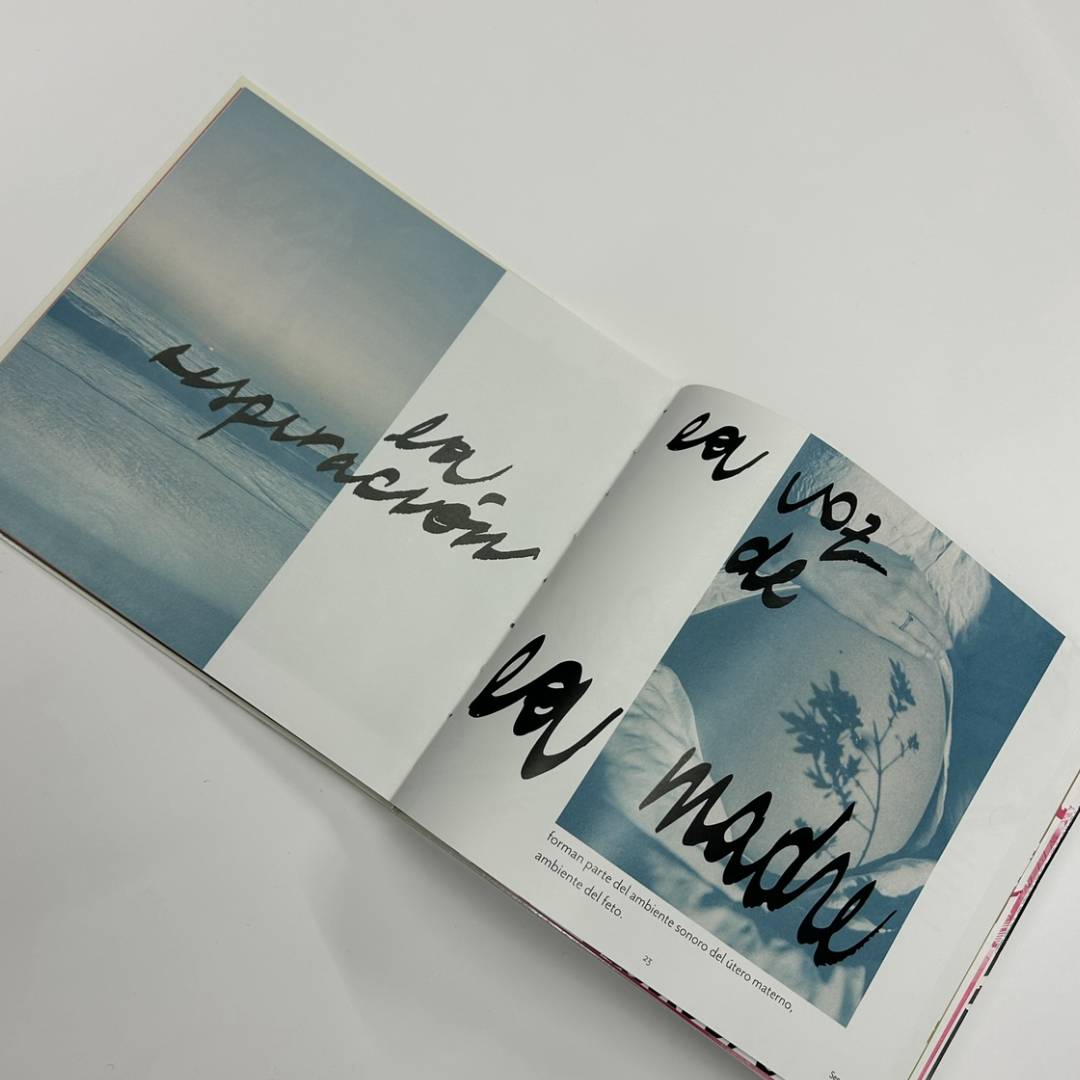 la
respiración
la voz
de
la madre
forman parte del ambiente sonoro del útero materno,
ambiente del feto.
23